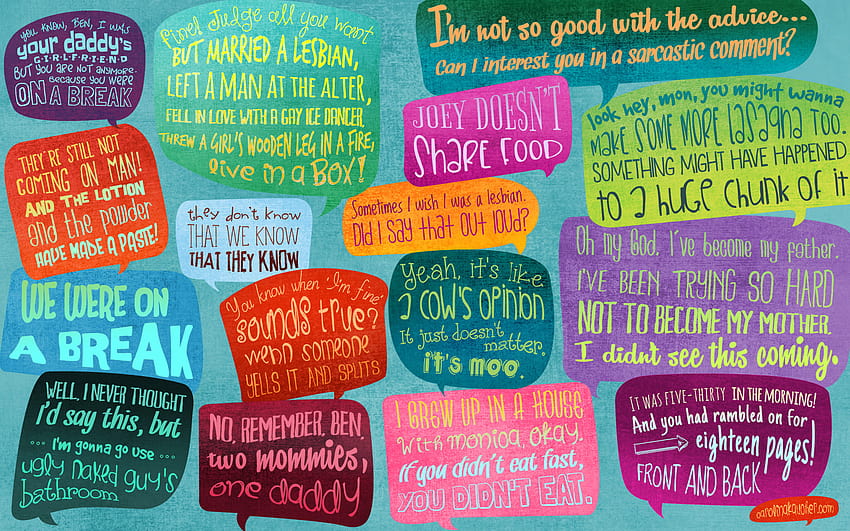 YOU KNOW, BEN, I WAS
your daddy's
GIRLFRIEND
BUT YOU ARE NOT ANYMORE.
BECAUSE YOU WERE
ON A BREAK
Fine! Judge all you want
BUT MARRIED A LESBIAN,
LEFT A MAN AT THE ALTER,
FELL IN LOVE WITH A GAY ICE DANCER,
THREW A GIRL'S WOODEN LEG IN A FIRE,
live in a BOX!
I'm not so good with the advice...
Can I interest you in a sarcastic comment?
JOEY DOESN'T
SHARE FOOD
look hey, mon, you might wanna
MAKE SOME MORE LASAGNA TOO.
SOMETHING MIGHT HAVE HAPPENED
to a huge chunk of it
THEY'RE STILL NOT
COMING ON MAN!
AND THE LOTION
and the powder
HAVE MADE A PASTE!
they don't know
THAT WE KNOW
THAT THEY KNOW
Sometimes I wish I was a lesbian.
Did I say that out loud?
Oh my God, I've become my father.
I'VE BEEN TRYING SO HARD
NOT TO BECOME MY MOTHER.
I didn't see this coming.
WE WERE ON
A BREAK
You know when 'I'm fine'
sounds true?
wenn someone
YELLS IT AND SPLITS
Yeah, it's like
a cow's opinion
It just doesn't
matter.
it's moo.
WELL, I NEVER THOUGHT
i'd say this, but
... I'm gonna go use ...
ugly naked guy's
bathroom
NO, REMEMBER, BEN.
two mommies,
one daddy
I GREW UP IN A HOUSE
With monica, okay.
If you didn't eat fast,
YOU DIDN'T EAT.
IT WAS FIVE-THIRTY IN THE MORNING!
And you had rambled on for
eighteen pages!
FRONT AND BACK